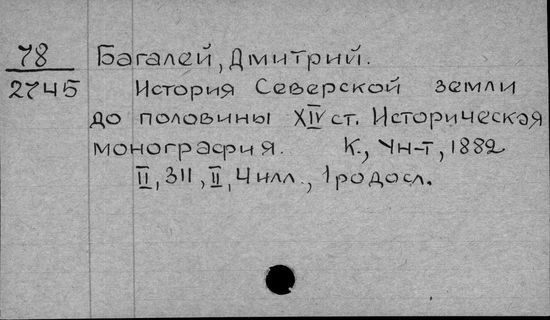 78 Багалей, Дмитрий.
2745 История Северской земли
до половины XIV ст. Историческая
монография. К., Ун-т, 1882
II, 311, II, 4 илл., 1 родосл.